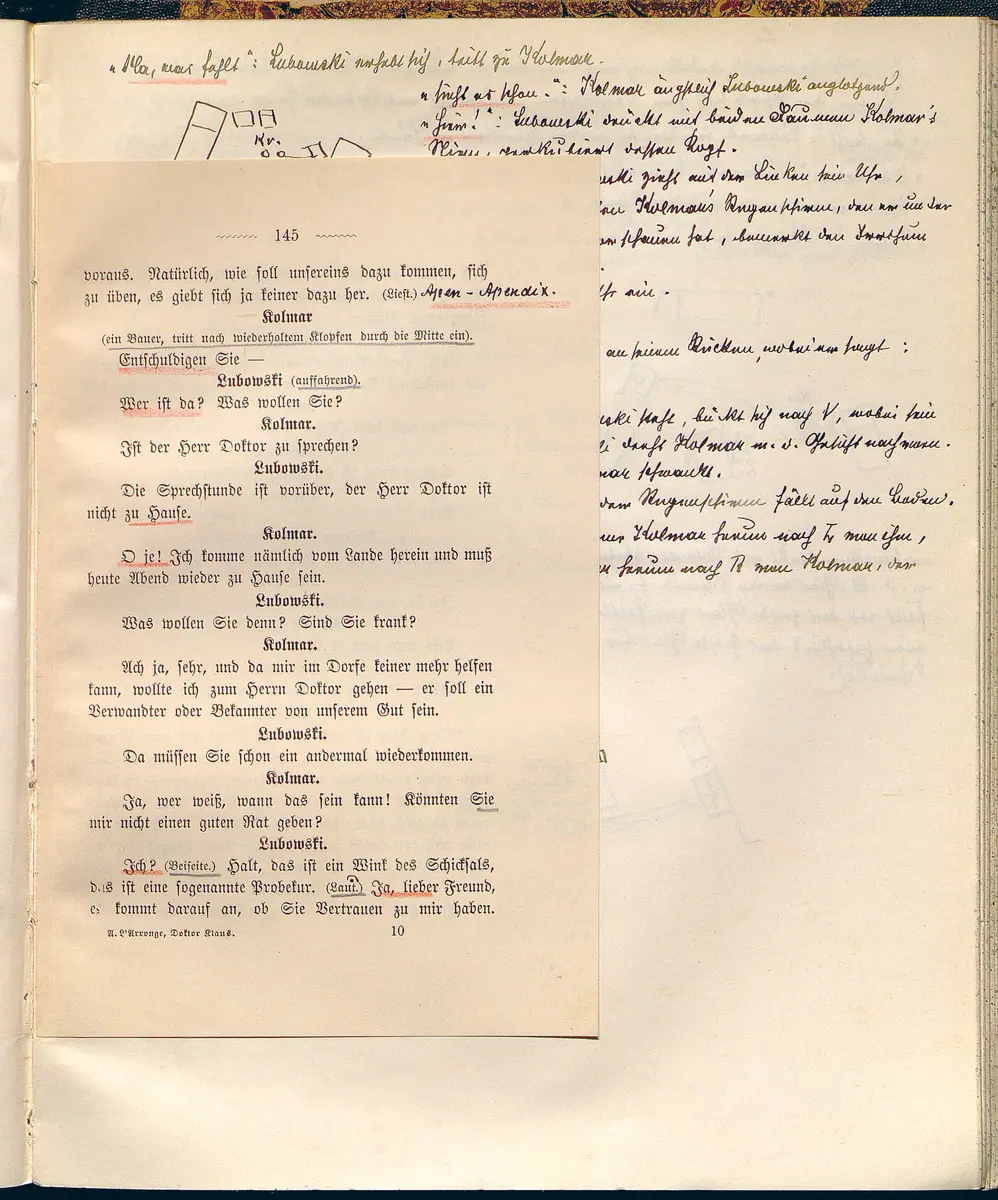 „Na, was fehlt“: Lubowski erhebt sich, tritt zu Kolmar.
„sieht es schon.“: Kolmar ängstlich Lubowski anglotzend.
„Hier!“: Lubowski drückt mit beiden Daumen Kolmar's
Stirn, dessen Kopf.
Kr.
zieht aus dem Linken sein Uhr,
Kolmar's Regenschirm, den er unter
schauen hat, bemerkt den Irrthum
Uhr ein.
an seinem Rücken, wobei er sagt:
steht, bückt sich nach V, wobei sein
dreht Kolmar m. d. Gesicht nach vorn.
schwankt.
dem Regenschirm fällt auf den Boden.
Kolmar herum nach L von ihm,
herum nach R von Kolmar, der
145
voraus. Natürlich, wie soll unsereins dazu kommen, sich
zu üben, es giebt sich ja keiner dazu her. (Liest.) Apen - Apendix.
Kolmar
(ein Bauer, tritt nach wiederholtem Klopfen durch die Mitte ein).
Entschuldigen Sie —
Lubowski (auffahrend).
Wer ist da? Was wollen Sie?
Kolmar.
Ist der Herr Doktor zu sprechen?
Lubowski.
Die Sprechstunde ist vorüber, der Herr Doktor ist
nicht zu Hause.
Kolmar.
O je! Ich komme nämlich vom Lande herein und muß
heute Abend wieder zu Hause sein.
Lubowski.
Was wollen Sie denn? Sind Sie krank?
Kolmar.
Ach ja, sehr, und da mir im Dorfe keiner mehr helfen
kann, wollte ich zum Herrn Doktor gehen — er soll ein
Verwandter oder Bekannter von unserem Gut sein.
Lubowski.
Da müssen Sie schon ein andermal wiederkommen.
Kolmar.
Ja, wer weiß, wann das sein kann! Könnten Sie
mir nicht einen guten Rat geben?
Lubowski.
Ich? (Beiseite.) Halt, das ist ein Wink des Schicksals,
das ist eine sogenannte Probekur. (Laut.) Ja, lieber Freund,
es kommt darauf an, ob Sie Vertrauen zu mir haben.
A. L'Arronge, Doktor Klaus.
10